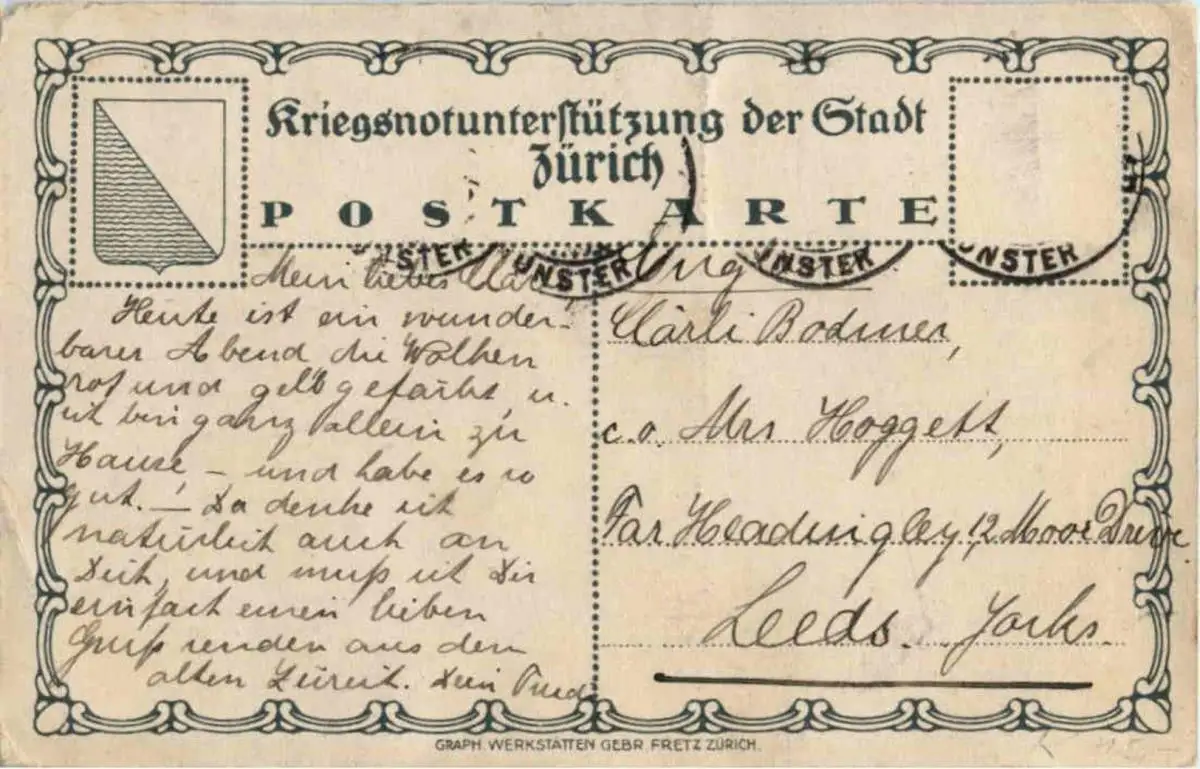 Kriegsnotunterstützung der Stadt
Zürich
POSTKARTE
UNSTER
UNSTER
UNSTER
UNSTER
Mein liebes
Heute ist ein wunder-
barer Abend die Wolken
rot und gelb gefärbt, u.
ich bin ganz allein zu
Hause, – und habe es so
gut. – Da denke ich
natürlich auch an
Dich, und muß ich Dir
einfach einen lieben
Gruß senden aus dem
alten Zürich. Dein
Clärli Bodmer,
c.o. Mrs Hoggett,
Far Headingley, 12 Moor Drive
Leeds. Yorks.
GRAPH. WERKSTÄTTEN GEBR. FRETZ ZÜRICH.